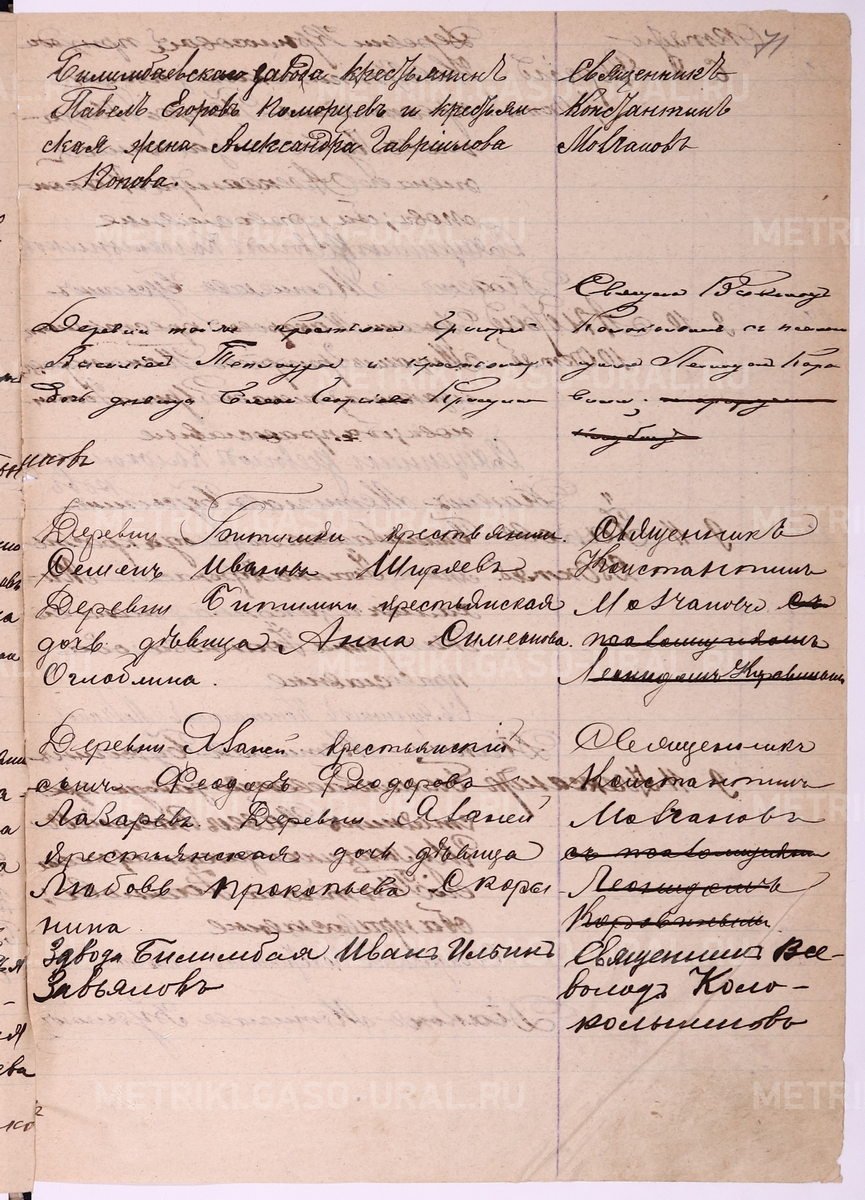 71
Билимбаевскаго завода крестьянинъ
Павелъ Егоровъ Поморцевъ и крестьян-
ская жена Александра Гавріилова
Попова.
Священникъ
Константинъ
Мовчановъ
Деревни крестьянинъ Григорій
Василіевъ и крестьянская
дочь девица Елена Георгіева
Священ. Всеволодъ
Колокольниковъ съ псалом
щикомъ Леонидомъ Коро
виным.
никовъ
Деревни Битимки крестьянинъ.
Семенъ Ивановъ Ширяевъ
Деревни Битимки крестьянская
дочь дѣвица Анна Симеонова.
Оглоблина.
Священникъ
Константинъ
Мовчановъ съ
псаломщикомъ
Леонидомъ Коровинымъ
Деревни Яваней крестьянский
сынъ Феодоръ Феодоровъ
Лазаревъ Деревни Яваней
крестьянская дочь дѣвица
Любовь Прокопьева Скоры-
нина.
Священникъ
Константинъ
Мовчановъ
съ псаломщикомъ
Леонидомъ
Коровинымъ.
Завода Билимбая Иванъ Ильинъ
Завьяловъ
Священникъ Все-
володъ Коло-
кольниковъ
METRIKI.GASO-URAL.RU